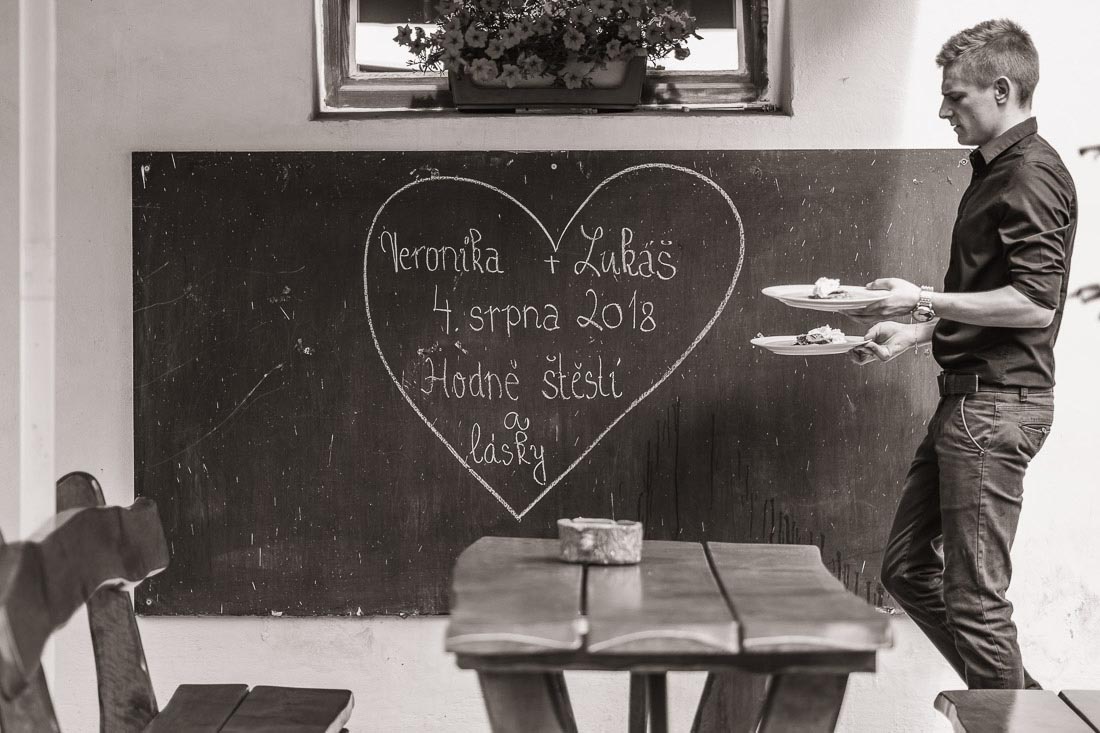 Veronika + Lukáš
4. srpna 2018
Hodně štěstí
a
lásky